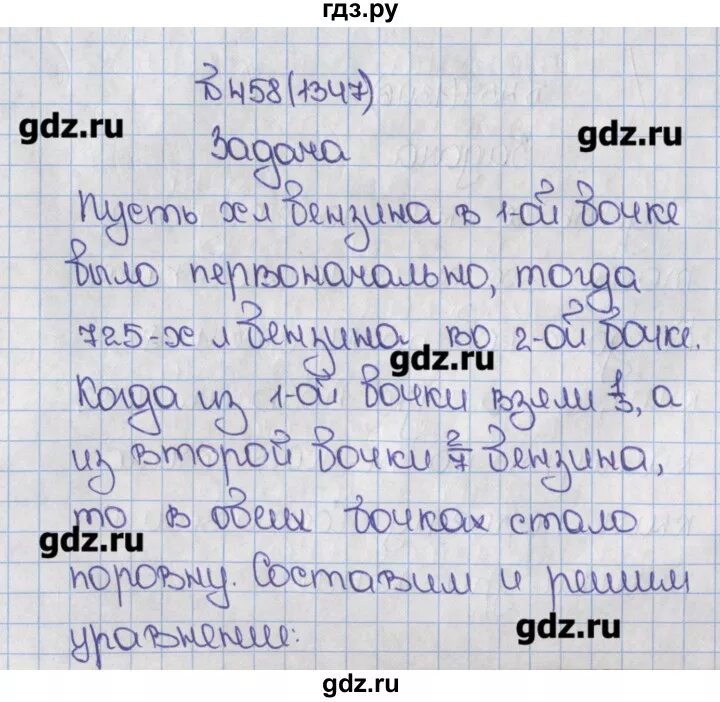 гдз.ру
В 458(1347)
gdz.ru
gdz.ru
Задача
Пусть х л бензина в 1-ой бочке
было первоначально, тогда
725-х л бензина во 2-ой бочке.
gdz.ru
Когда из 1-ой бочки взяли 1/3, а
из второй бочки 2/7 бензина,
то в обеих бочках стало
gdz.ru
поровну. Составим и решим
уравнение:
gdz.ru
gdz.ru